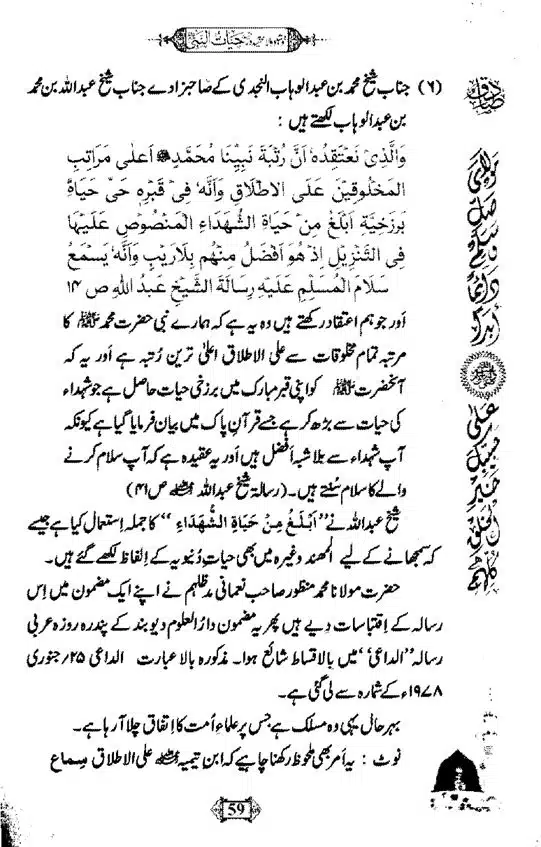 حیات النبی
(۶) جناب شیخ محمد بن عبدالوہاب النجدی کے صاحبزادے جناب شیخ عبداللہ بن محمد
بن عبدالوہاب لکھتے ہیں :
وَالَّذِیْ نَعْتَقِدُہٗ اَنَّ رُتْبَۃَ نَبِیِّنَا مُحَمَّدٍﷺ اَعلٰی مَرَاتِبِ
المَخْلُوقِیْنَ عَلَی الْاِطْلَاقِ وَاَنَّہٗ فِیْ قَبْرِہٖ حَیٌّ حَیَاۃً
بَرزَخِیَّۃً اَبْلَغُ مِنْ حَیَاۃِ الشُّھَدَاءِ الْمَنْصُوْصِ عَلَیْھَا
فِی التَّنْزِیْلِ اِذْ ھُوَ اَفْضَلُ مِنْھُمْ بِلَارَیْبٍ وَاَنَّہٗ یَسْمَعُ
سَلَامَ الْمُسَلِّمِ عَلَیْہِ رِسَالَۃُ الشَّیْخِ عَبْدُ اللّٰہِ ص ۱۴
اور جو ہم اعتقاد رکھتے ہیں وہ یہ ہے کہ ہمارے نبی حضرت محمد ﷺ کا
مرتبہ تمام مخلوقات سے علی الاطلاق اعلیٰ ترین رتبہ ہے اور یہ کہ
آنحضرت ﷺ کو اپنی قبر مبارک میں برزخی حیات حاصل ہے جو شہداء
کی حیات سے بڑھ کر ہے جسے قرآنِ پاک میں بیان فرمایا گیا ہے کیونکہ
آپ شہداء سے بلا شبہ افضل ہیں اور یہ عقیدہ ہے کہ آپ سلام کرنے
والے کا سلام سُنتے ہیں۔ (رسالۃ شیخ عبداللہ ص ۴۱)
شیخ عبداللہ نے "اَبْلَغُ مِنْ حَیَاۃِ الشُّھَدَاءِ" کا جملہ استعمال کیا ہے جیسے
کہ سمجھانے کے لیے المھند وغیرہ میں بھی حیاتِ دُنیویہ کے الفاظ لکھے گئے ہیں۔
حضرت مولانا محمد منظور صاحب نعمانی مدظلہم نے اپنے ایک مضمون میں اِس
رسالہ کے اقتباسات دیے ہیں پھر یہ مضمون دارُالعلوم دیوبند کے پندرہ روزہ عربی
رسالہ "الداعی" میں بالاقساط شائع ہوا۔ مذکورہ بالا عبارت الداعی ۲۵ / جنوری
۱۹۷۸ء کے شمارہ سے لی گئی ہے۔
بہر حال یہی وہ مسلک ہے جس پر علماءِ اُمت کا اتفاق چلا آرہا ہے۔
نوٹ : یہ اَمر بھی ملحوظ رکھنا چاہیے کہ ابن تیمیہ علی الاطلاق سِماع
مولای صل وسلم دائما ابدا
علی حبیبک خیر الخلق کلہم
59